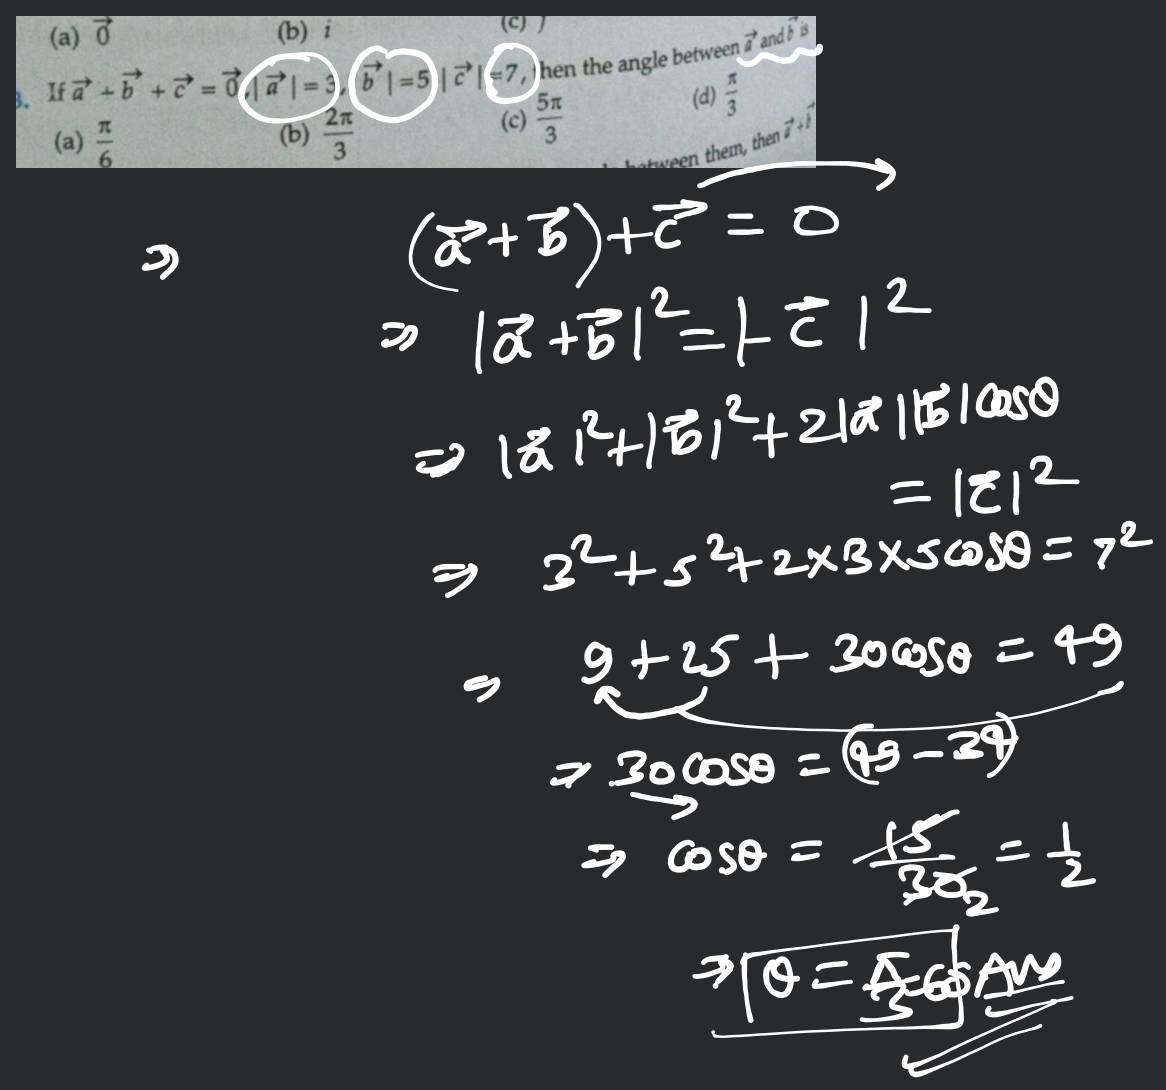 (a) 0⃗ (b) i (c) j
3. If a⃗ + b⃗ + c⃗ = 0⃗, |a⃗| = 3, |b⃗| = 5, |c⃗| = 7, then the angle between a⃗ and b⃗ is
(a) π/6 (b) 2π/3 (c) 5π/3 (d) π/3
between them, then a⃗ + b⃗
⇒ (a⃗ + b⃗) + c⃗ = 0
⇒ |a⃗ + b⃗|² = |-c⃗|²
⇒ |a⃗|² + |b⃗|² + 2|a⃗||b⃗| cosθ
= |c⃗|²
⇒ 3² + 5² + 2×3×5 cosθ = 7²
⇒ 9 + 25 + 30 cosθ = 49
⇒ 30 cosθ = (49 - 34)
⇒ cosθ = 15/30 2 = 1/2
⇒ θ = π/3 Ans